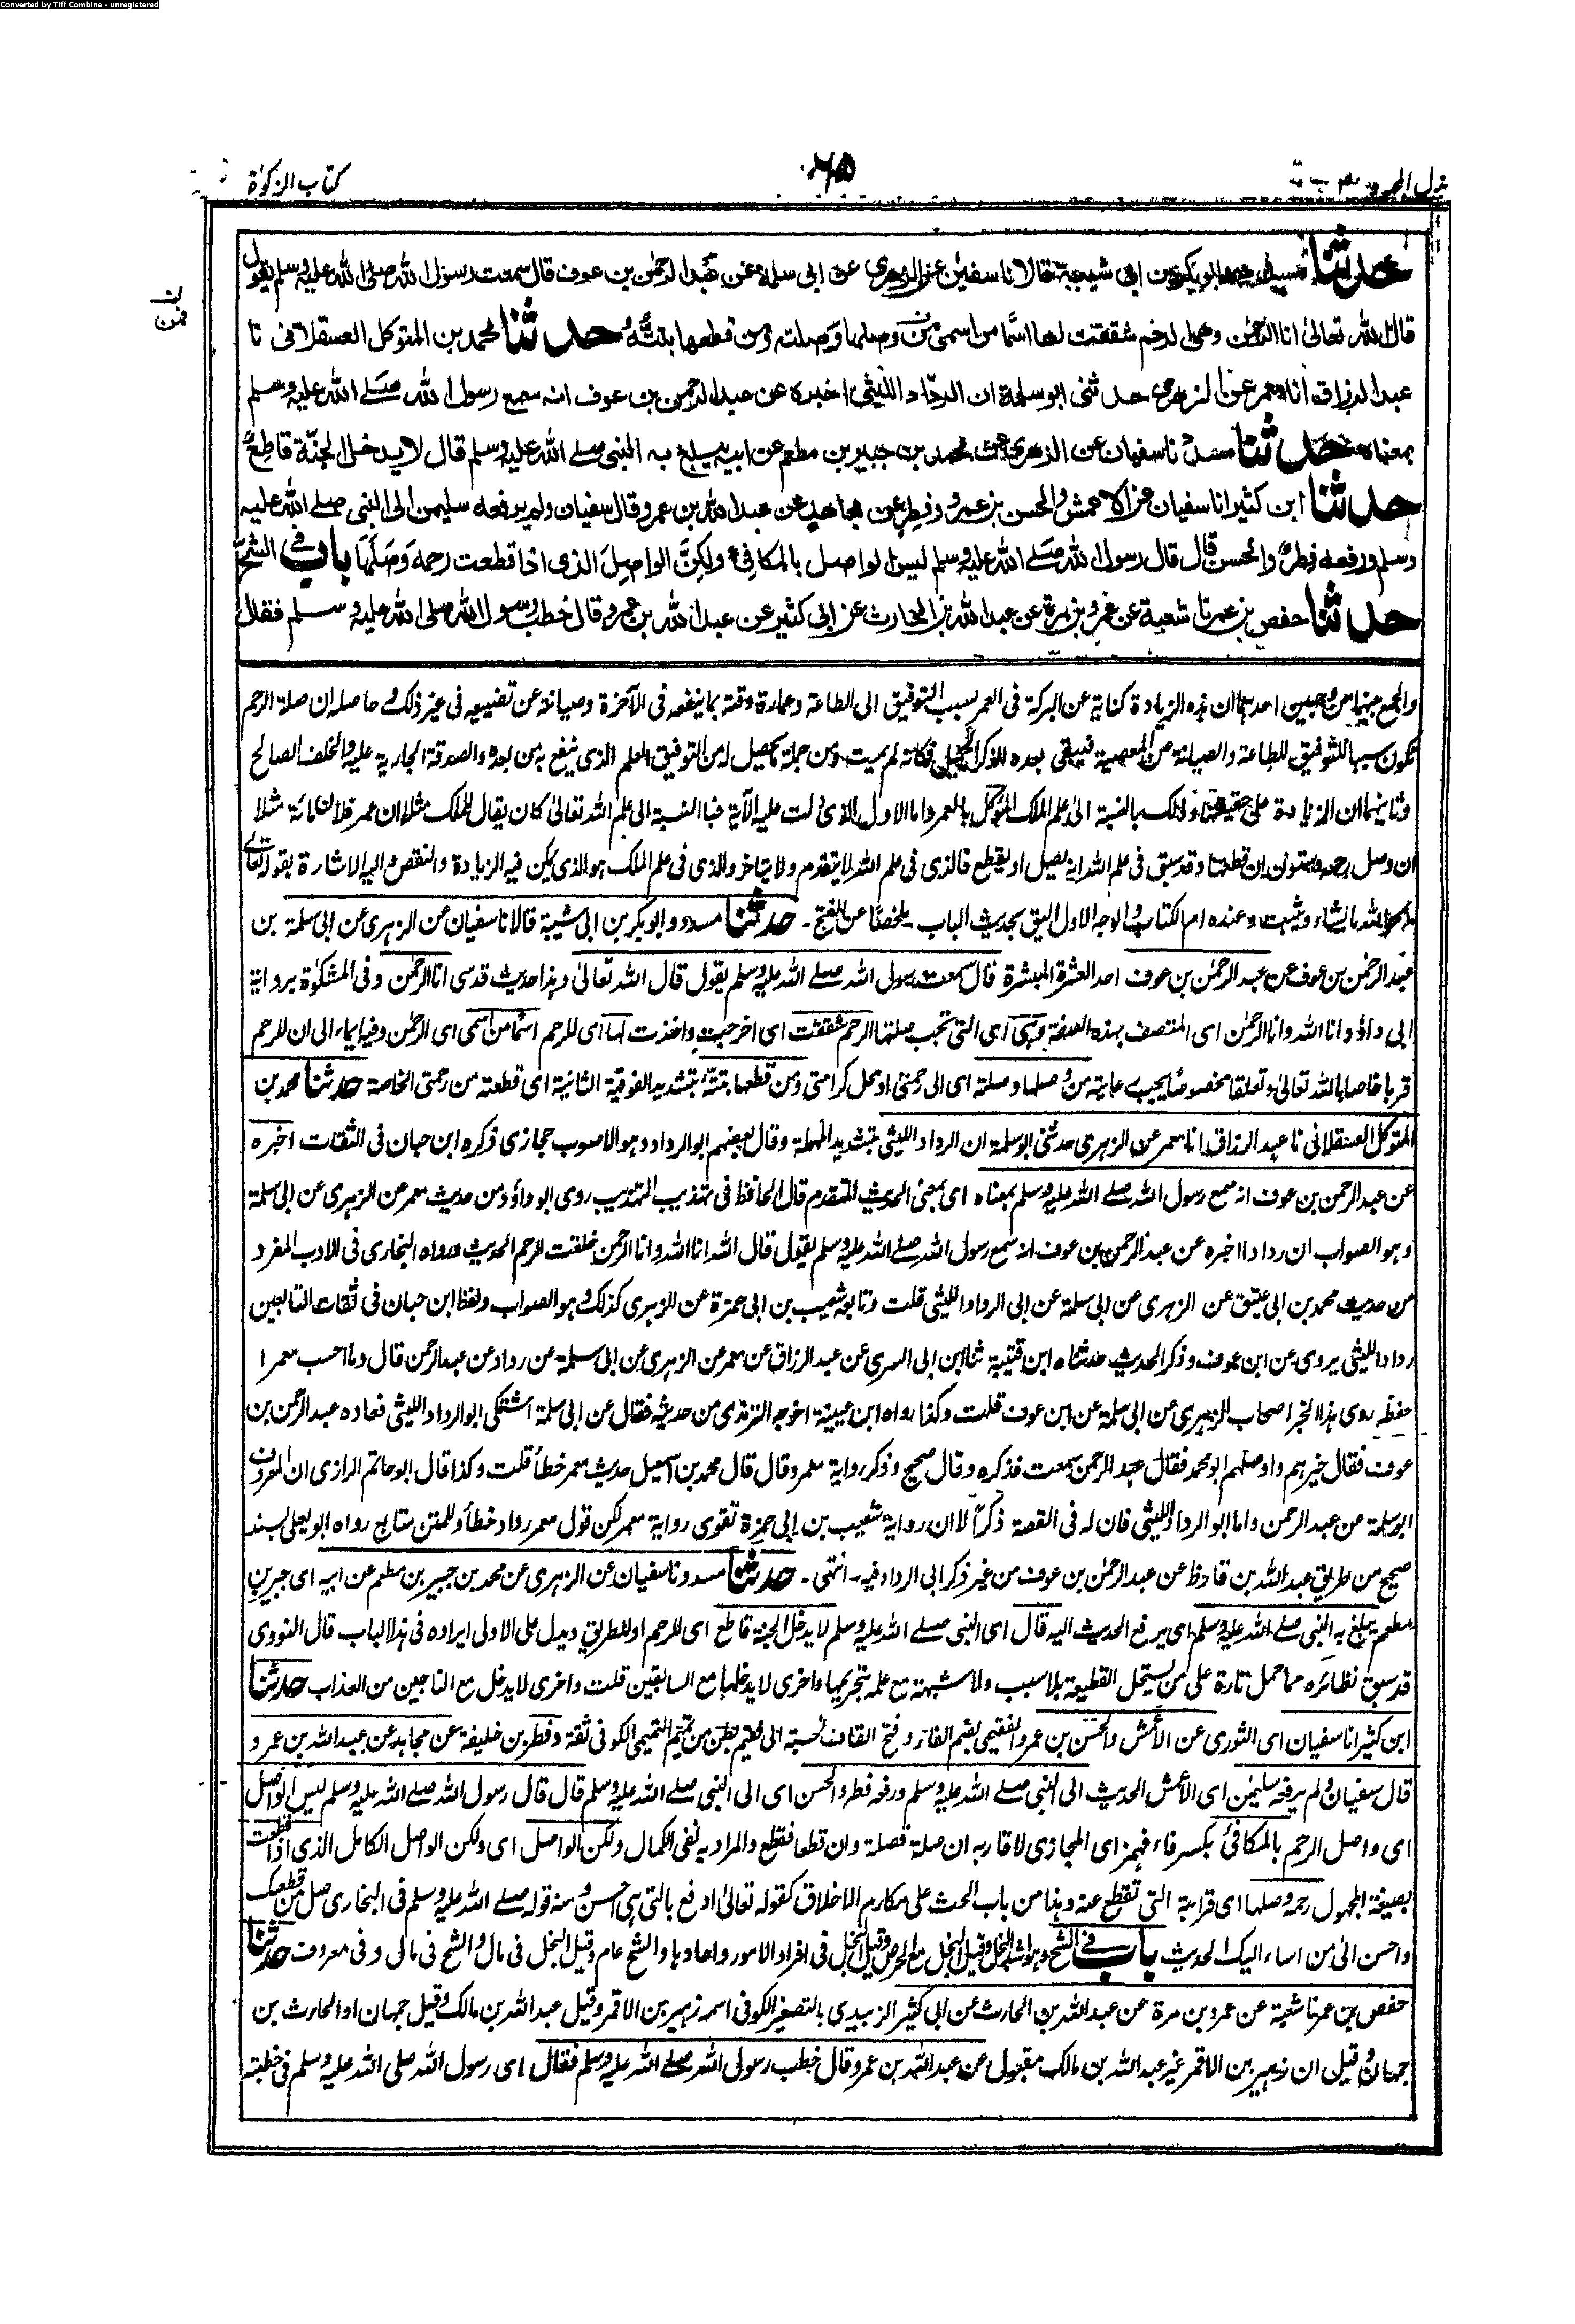 Converted by Tiff Combine - unregistered
بذل المجهود
٦٥
كتاب الزكوٰة
حدثنا مسدد وابوبكر بن ابى شيبة قالا نا سفيٰن عن الزهرى عن ابى سلمة عن عبد الرحمٰن بن عوف قال سمعت رسول الله صلى الله عليه وسلم يقول
قال الله تعالىٰ انا الرحمٰن وهى الرحم شققت لها اسمًا من اسمى من وصلها وصلته ومن قطعها بتتُّهُ حدثنا محمد بن المتوكل العسقلانى نا
عبد الرزاق انا معمر عن الزهرى حدثنى ابو سلمة ان الردّاد الليثى اخبره عن عبد الرحمن بن عوف انه سمع رسول الله صلے الله عليه وسلم
بمعناه حدثنا مسدد نا سفيان عن الزهرى عن محمد بن جبير بن مطعم عن ابيه يبلغ به النبى صلے الله عليه وسلم قال لا يدخل الجنّة قاطعٌ
حدثنا ابن كثير انا سفيان عن الاعمش والحسن بن عمرو وفطر عن مجاهد عن عبد الله بن عمرو قال سفيان ولم يرفعه سليمن الى النبى صلے الله عليه
وسلم ورفعه فطر والحسن قال قال رسول الله صلے الله عليه وسلم ليس الواصل بالمكافئ ولكنَّ الواصِلَ الذى اذا قطعت رحمه وَصَلَهَا باب فى الشح
حدثنا حفص بن عمر نا شعبة عن عمرو بن مرة عن عبد الله بن الحارث عن ابى كثير عن عبد الله بن عمرو قال خطب رسول الله صلى الله عليه وسلم فقال
والجمع بينهما من وجهين احدهما ان هذه الزيادة كناية عن البركة فى العمر بسبب التوفيق الى الطاعة وعمارة وقته بما ينفعه فى الآخرة وصيانته عن تضييعه فى غير ذلك وحاصله ان صلة الرحم
تكون سببا للتوفيق للطاعة والصيانة عن المعصية فيبقى بعده الذكر الجميل فكانه لم يمت ومن جملة ما يحصل له من التوفيق العلم الذى ينتفع به من بعده والصدقة الجارية عليه والخلف الصالح
وثانيهما ان الزيادة على حقيقتها وذلك بالنسبة الى علم الملك المؤكل بالعمر واما الاول الذى دلت عليه الآية فبالنسبة الى علم الله تعالىٰ كان يقال للملك مثلا ان عمر فلان مائة مثلا
ان وصل رحمه وستون ان قطعها وقد سبق فى علم الله انه يصل او يقطع فالذى فى علم الله لا يتقدم ولا يتاخر والذى فى علم الملك هو الذى يمكن فيه الزيادة والنقص واليه الاشارة بقوله تعالىٰ
يمحو الله ما يشاء ويثبت وعنده ام الكتاب والوجه الاول اليق بحديث الباب - ملخصًا عن الفتح - حدثنا مسدد وابوبكر بن ابى شيبة قالا نا سفيان عن الزهرى عن ابى سلمة بن
عبد الرحمٰن بن عوف عن عبد الرحمٰن بن عوف احد العشرة المبشرة قال سمعت رسول الله صلے الله عليه وسلم يقول قال الله تعالىٰ وهذا حديث قدسى انا الرحمٰن وفى المشكوٰة برواية
ابى داؤد انا الله وانا الرحمٰن اى المتصف بهذه الصفة وهى اى التى تجب صلتها الرحم شققت اى اخرجت واخذت لها اى للرحم اسمًا من اسمى اى الرحمٰن وفيه ايماء الى ان للرحم
قربا خاصا بالله تعالىٰ وتعلقا مخصوصًا يجب رعايته من وصلها وصلته اى الى رحمتى او محل كرامتى ومن قطعها بتتّه بتشديد الفوقية الثانية اى قطعته من رحمتى الخاصة حدثنا محمد بن
المتوكل العسقلانى نا عبد الرزاق انا معمر عن الزهرى حدثنى ابو سلمة ان الرداد الليثى بتشديد المهملة وقال بعضهم ابو الرداد وهو الاصوب حجازى ذكره ابن حبان فى الثقات اخبره
عن عبد الرحمن بن عوف انه سمع رسول الله صلے الله عليه وسلم بمعناه اى بمعنى الحديث المتقدم قال الحافظ فى تهذيب التهذيب روى ابو داؤد من حديث معمر عن الزهرى عن ابى سلمة
وهو الصواب ان ردادا اخبره عن عبد الرحمن بن عوف انه سمع رسول الله صلے الله عليه وسلم يقول قال الله انا الله وانا الرحمن خلقت الرحم الحديث ورواه البخارى فى الادب المفرد
من حديث محمد بن ابى عتيق عن الزهرى عن ابى سلمة عن ابى الرداد الليثى قلت وتابعه شعيب بن ابى حمزة عن الزهرى كذلك وهو الصواب ولفظ ابن حبان فى ثقات التابعين
رداد الليثى يروى عن ابن عوف وذكر الحديث حدثناه ابن قتيبة ثنا ابن ابى السرى عن عبد الرزاق عن معمر عن الزهرى عن ابى سلمة عن رداد عن عبد الرحمن قال وما احسب معمرا
حفظه روى هذا الخبر اصحاب الزهرى عن ابى سلمة عن ابن عوف قلت وكذا رواه ابن عيينة اخرجه الترمذى من حديثه فقال عن ابى سلمة اشتكى ابو الرداد الليثى فعاده عبد الرحمن بن
عوف فقال خيرهم واوصلهم ابو محمد فقال عبد الرحمن سمعت فذكره وقال صحيح وذكر رواية معمر وقال قال محمد بن اسمعيل حديث معمر خطأ قلت وكذا قال ابو حاتم الرازى ان المعروف
ابو سلمة عن عبد الرحمن واما ابو الرداد الليثى فان له فى القصة ذكرًا لا ان رواية شعيب بن ابى حمزة تقوى رواية معمر لكن قول معمر رداد خطأ وللمتن متابع رواه ابو يعلى بسند
صحيح من طريق عبد الله بن قارظ عن عبد الرحمٰن بن عوف من غير ذكر ابى الرداد فيه - انتهى - حدثنا مسدد نا سفيان عن الزهرى عن محمد بن جبير بن مطعم عن ابيه اى جبير بن
مطعم يبلغ به النبى صلے الله عليه وسلم اى يرفع الحديث اليه قال اى النبى صلے الله عليه وسلم لا يدخل الجنة قاطع اى للرحم او للطريق ويدل على الاولى ايراده فى هذا الباب قال النووى
قد سبق نظائره مما حمل تارة على من يستحل القطيعة بلا سبب ولا شبهة مع علمه بتحريمها واخرى لا يدخلها مع السابقين قلت واخرى لا يدخل مع الناجين من العذاب حدثنا
ابن كثير انا سفيان اى الثورى عن الأعمش والحسن بن عمرو الفقيمى بضم الفاء وفتح القاف نسبة الى فقيم بطن من تميم التميمى الكوفى ثقة وفطر بن خليفة عن مجاهد عن عبد الله بن عمرو
قال سفيان ولم يرفعه سليمٰن اى الأعمش الحديث الى النبى صلے الله عليه وسلم ورفعه فطر والحسن اى الى النبى صلے الله عليه وسلم قال قال رسول الله صلے الله عليه وسلم ليس الواصل
اى واصل الرحم بالمكافئ بكسر فاء فهمز اى المجازى لاقاربه ان صلة فصلة وان قطعا فقطع والمراد به نفى الكمال ولكن الواصل اى ولكن الواصل الكامل الذى اذا قطعت
بصيغة المجهول رحمه وصلها اى قرابته التى تقطع عنه وهذا من باب الحث على مكارم الاخلاق كقوله تعالىٰ ادفع بالتى هى احسن ومنه قوله صلے الله عليه وسلم فى البخارى صل من قطعك
واحسن الى من اساء اليك الحديث باب فى الشح وهو اشد البخل وقيل البخل مع الحرص وقيل البخل فى افراد الامور وآحادها والشح عام وقيل البخل فى مال والشح فى مال وفى معروف حدثنا
حفص بن عمر نا شعبة عن عمرو بن مرة عن عبد الله بن الحارث عن ابى كثير الزبيدى بالتصغير الكوفى اسمه زهير بن الاقمر وقيل عبد الله بن مالك وقيل جمهان او الحارث بن
جمهان وقيل ان زهير بن الاقمر غير عبد الله بن مالك مقبول عن عبد الله بن عمرو قال خطب رسول الله صلے الله عليه وسلم فقال اى رسول الله صلى الله عليه وسلم فى خطبته